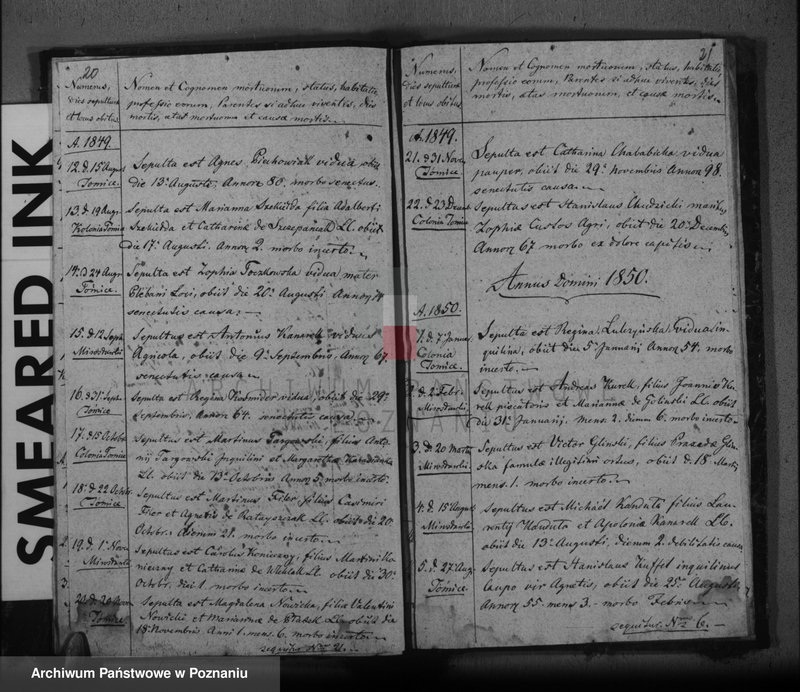 SMEARED INK
20
Numerus,
dies sepulturæ
et locus obitus
Nomen et Cognomen mortuorum, status, habitatio
professio eorum, Parentes si adhuc viventes, dies
mortis, ætas mortuorum et causa mortis.
A. 1849.
12. d. 15 August
Tomice.
Sepulta est Agnes vidua obiit
die 13 Augusti, Annor 80. morbo senectus.
13. d. 19 Aug.
Kolonia Tomice
Sepulta est Marianna filia Adalberti
et Catharinæ de Szczepaniak Ll. obiit
die 17. Augusti. Annor 2. morbo incerto.
14. d 24 Aug.
Tomice.
Sepulta est Zophia Toczkowska vidua mater
Plebani Loci, obiit die 20. Augusti Annor 74
senectutis causa.
15. d. 12 Sept.
Mirosławki
Sepultus est Antonius Kanarek viduus
Agricola, obiit die 9. Septembris Annor 67.
senectutis causa
16. d. 31. Sept.
Tomice
Sepulta est Regina vidua, obiit die 29.
Septembris, Annor 64. senectutis causa
17. d. 15 Octobr
Colonia Tomice
Sepultus est Martinus Targowski, filius Anto
nij Targowski Inquilini et Margarethæ
Ll. obiit die 13. Octobris Annor 5. morbo incerto.
18. d. 22 Octobr.
Tomice
Sepultus est Martinus Fifer filius Casimiri
et Agnetis de Ratayszczak Ll. obiit die 20
Octobr. dierum 21. morbo incerto
19. d. 1. Nov.
Mirosławki
Sepultus est Carolus Konieczny, filius Martini Ko
nieczny et Catharinæ de Ll. obiit die 30.
Octobr. diei 1. morbo incerto.
20. d. 20 Nov.
Tomice
Sepulta est Magdalena Nowicka, filia Valentini
Nowicki et Mariannæ de Ll. obiit die
18. Novembris Anni 1. mens. 6. morbo incerto
sequitur Nrus 21.
21
Numerus,
dies sepulturæ
et locus obitus
Nomen et Cognomen mortuorum, status, habitatio,
professio eorum, Parentes si adhuc viventes, dies
mortis, ætas mortuorum, et causa mortis.
A. 1849.
21. d. 31. Novbr
Tomice
Sepulta est Catharina Chababicka vidua
pauper, obiit die 29. Novembris Annor 98.
senectutis causa.
22. d. 23 Decemb
Colonia Tomice
Sepultus est Stanislaus Chudzicki maritus
Zophiæ Custos Agri, obiit die 20. Decembr
Annor 67 morbo ex dolore capitis
Annus Domini 1850.
A. 1850.
1. d. 7. Januar
Colonia
Tomice.
Sepulta est Regina vidua in-
quilina, obiit die 5. Januarij Annor 54. morbo
incerto.
2. d. 2 Febr.
Mirosławki.
Sepultus est Andreas Kurek, filius Joannis Ku
rek piscatoris et Mariannæ de Glinski Ll. obiit
die 31. Januarij, mens. 2. dierum 6. morbo incerto
3. d. 20 Martii
Mirosławki
Sepultus est Victor Glinski, filius Praxedæ Glin
ska famulæ illegitimi ortus, obiit d. 18. Martij
mens. 1. morbo incerto.
4. d. 15 August
Mirosławki
Sepultus est Michaël Handuta filius Lau
rentij Handuta et Apoloniæ Kanarek Ll.
obiit die 13. Augusti. dierum 2. debilitatis causa
5. d. 27 Aug.
Tomice.
Sepultus est Stanislaus Kuffel inquilinus
caupo vir Agnetis, obiit die 25. Augusti
Annor 55 mens 3. morbo Febris
sequitur. Nrus 6.
ARCHIWUM PAŃSTWOWE
POZNAŃ
Archiwum Państwowe w Poznaniu